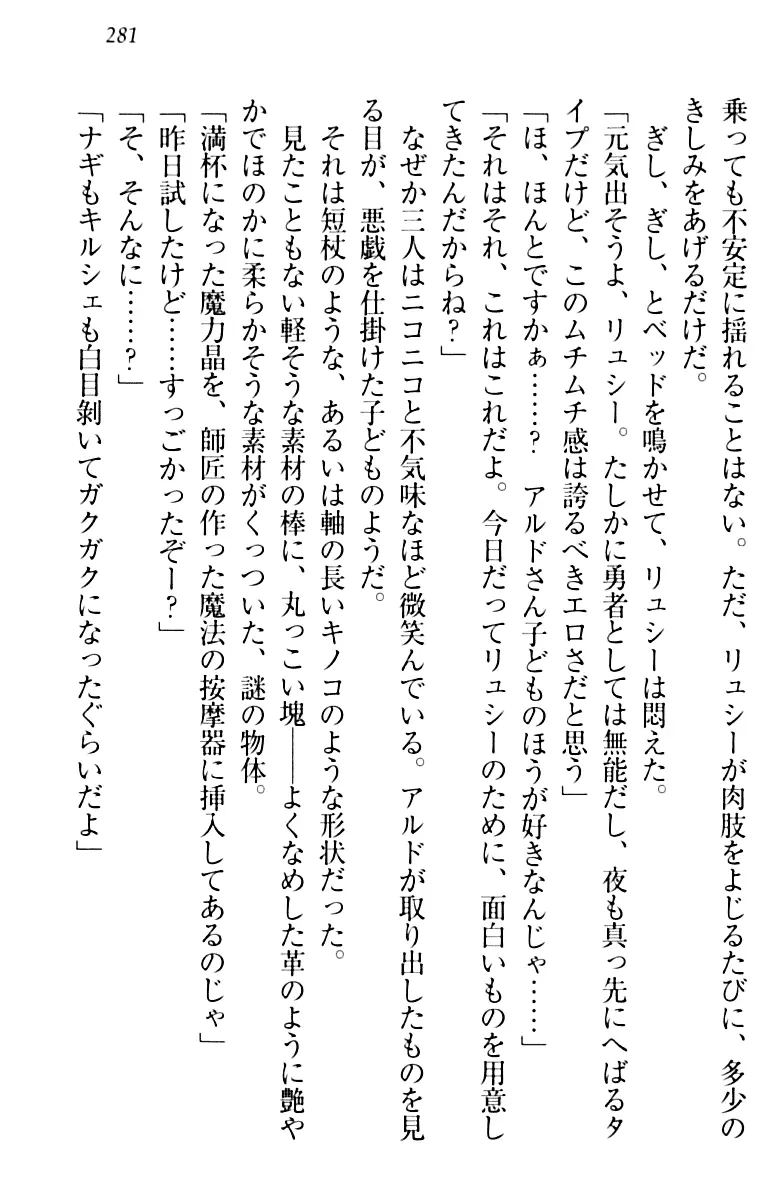 281
乗っても不安定に揺れることはない。ただ、リュシーが肉肢をよじるたびに、多少の
きしみをあげるだけだ。
ぎし、ぎし、とベッドを鳴かせて、リュシーは悶えた。
「元気出そうよ、リュシー。たしかに勇者としては無能だし、夜も真っ先にへばるタ
イプだけど、このムチムチ感は誇るべきエロさだと思う」
「ほ、ほんとですかぁ……？　アルドさん子どものほうが好きなんじゃ……」
「それはそれ、これはこれだよ。今日だってリュシーのために、面白いものを用意し
てきたんだからね？」
なぜか三人はニコニコと不気味なほど微笑んでいる。アルドが取り出したものを見
る目が、悪戯を仕掛けた子どものようだ。
それは短杖のような、あるいは軸の長いキノコのような形状だった。
見たこともない軽そうな素材の棒に、丸っこい塊――よくなめした革のように艶や
かでほのかに柔らかそうな素材がくっついた、謎の物体。
「満杯になった魔力晶を、師匠の作った魔法の按摩器に挿入してあるのじゃ」
「昨日試したけど……すっごかったぞー？」
「そ、そんなに……？」
「ナギもキルシェも白目剥いてガクガクになったぐらいだよ」